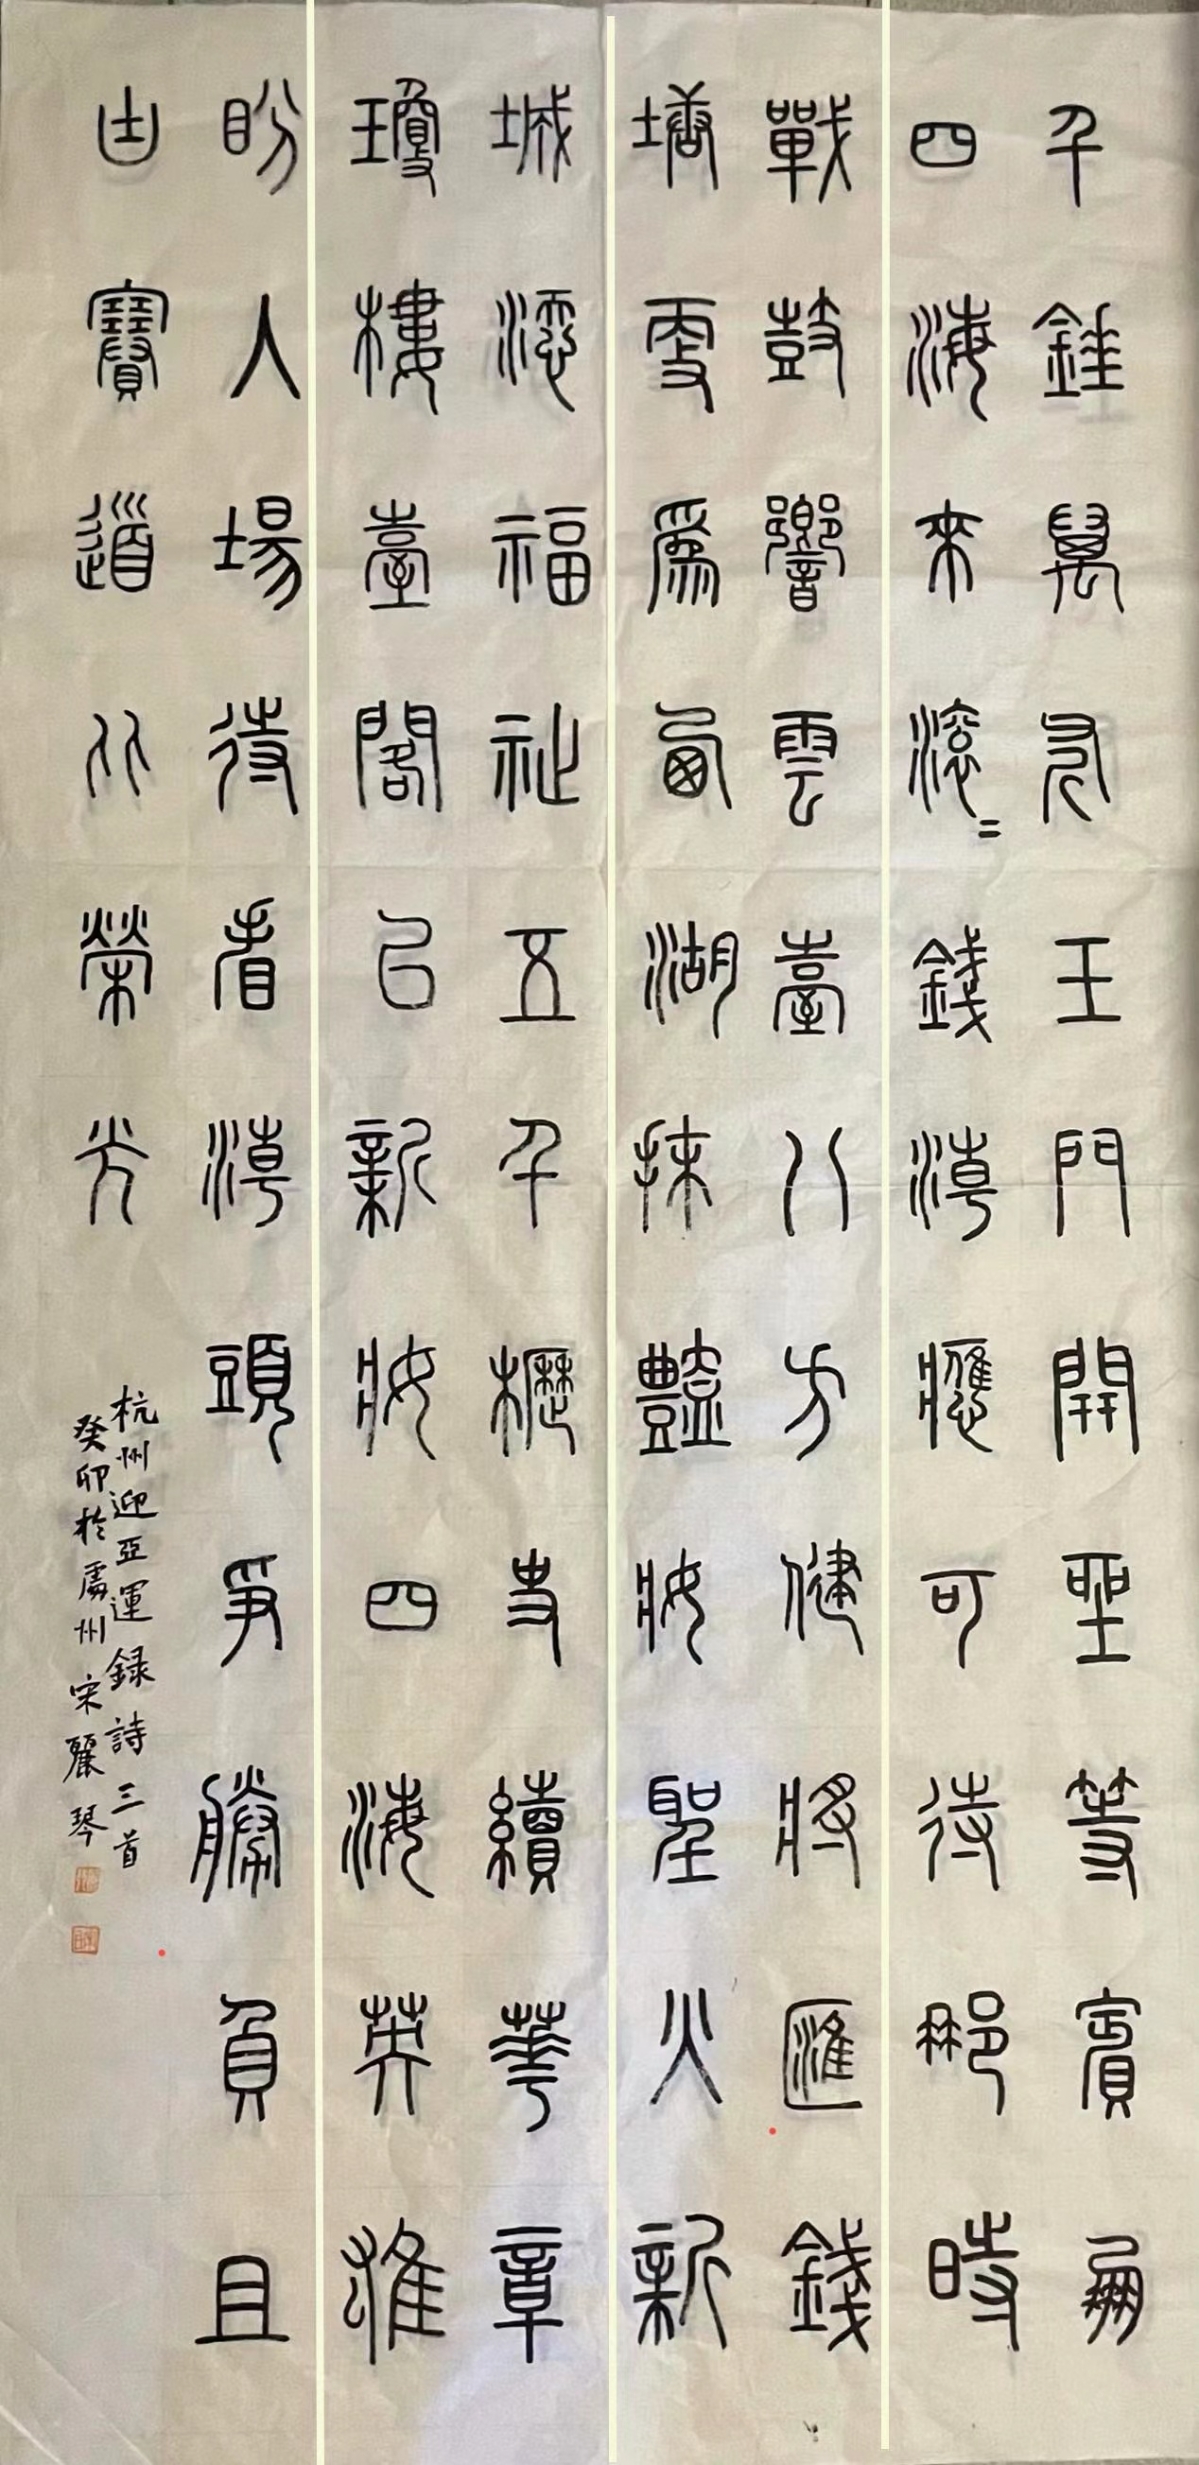 千錘萬玉門開坐等賓朋
四海來滾〻錢潮應可待那時
戰鼓響雲臺八方健將匯錢
塘更為西湖抹豔妝聖火新
城添福祉五千歷史續華章
瓊樓臺閣已新妝四海英雄
盼入場待看潮頭爭勝負且
由賽道榮光
杭州迎亞運錄詩三首
癸卯於處州宋麗琴